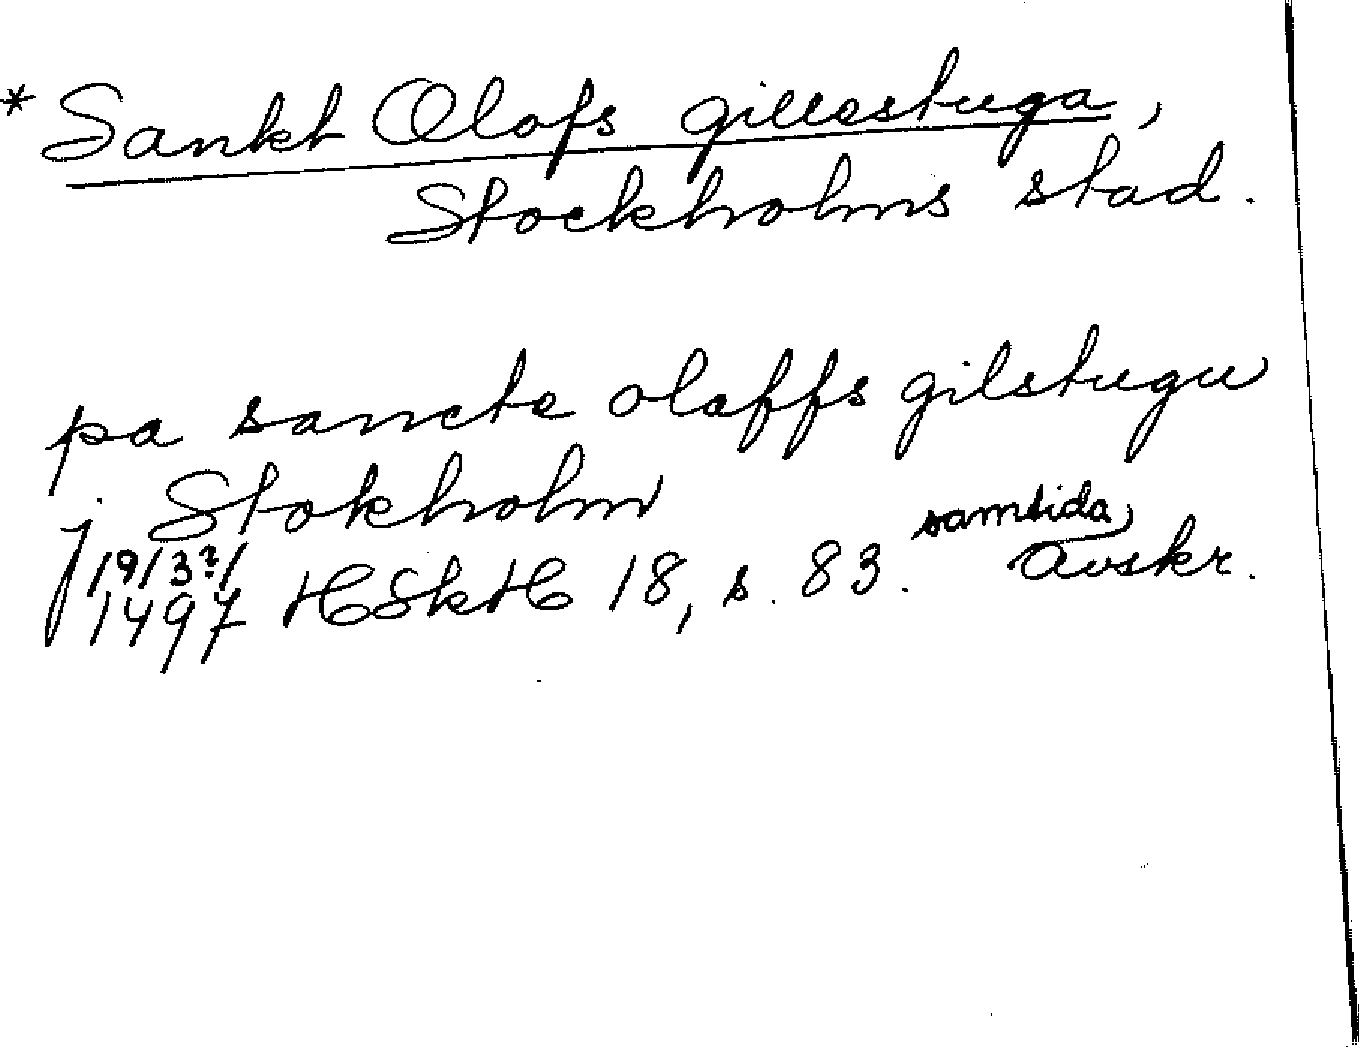 * Sankt Olofs gillestuga,
Stockholms stad.
pa sancte olaffs gilstugu
j Stokholm
/19/3?/ samtida
1497 HSkH 18, s. 83. avskr.